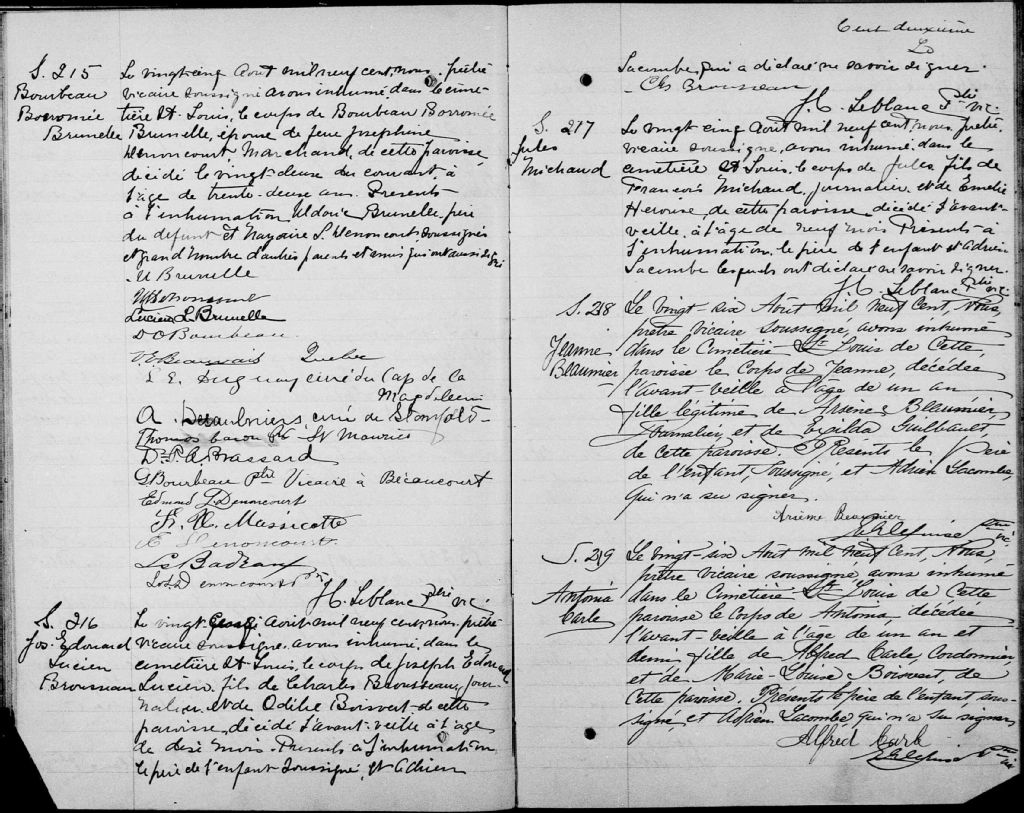 S. 215
Bourbeau
Borromée
Brunelle
Le vingt cinq Aout mil neuf cent, nous, prêtre
vicaire soussigné avons inhumé dans le cime-
tière St Louis, le corps de Bourbeau Borromée
Brunelle, époux de feue Josephine
Denoncourt Marchand, de cette paroisse,
décédé le vingt-deux du courant, à
l'age de trente-deux ans. Presents
à l'inhumation Uldoric Brunelle père
du defunt et Nazaire L. Denoncourt soussignés
et grand nombre d'autres parents et amis qui ont aussi signé
U Brunelle
Lucien L. Brunelle
D O Bourbeau
Beauvais Quebec
L E Duguay curé du Cap de la
Magdeleine
A. curé de Stanfold
Thomas Caron Ptre St Maurice
Dr P. A. Brassard
G Bourbeau Ptre Vicaire à Bécancourt
Edmond L Denoncourt
F. X. Massicotte
E Denoncourt
L. Badeaux
Denoncourt
H. Leblanc Ptre vic.
S. 216
Jos. Edouard
Lucien
Brousseau
Le vingt Aout mil neuf cent, nous, prêtre
vicaire soussigné, avons inhumé, dans le
cemetière St Louis, le corps de Joseph Edouard
Lucien, fils de Charles Brousseau, jour-
nalier et de Odilie Boisvert de cette
paroisse, décédé l'avant-veille à l'age
de mois. Presents à l'inhumation,
le père de l'enfant soussigné, et Adrien
Cent deuxième
Lacombe, qui a déclaré ne savoir signer.
Chs Brousseau
H. Leblanc Ptre vic.
S. 217
Jules
Michaud
Le vingt cinq Aout mil neuf cent, nous, prêtre,
vicaire soussigné, avons inhumé, dans le
cemetière St Louis, le corps de Jules, fils de
Francois Michaud, journalier, et de Emelie
Heroise, de cette paroisse, décédé l'avant-
veille, à l'age de neuf mois Présents à
l'inhumation, le père de l'enfant et Adrien
Lacombe lesquels ont déclaré ne savoir signer.
H. Leblanc Ptre vic.
S. 218
Jeanne
Beaumier
Le vingt-six Août mil neuf cent, Nous,
prêtre vicaire soussigné, avons inhumé
dans le Cimetière St Louis de Cette,
paroisse le Corps de Jeanne, décédée
l'avant-veille à l'age de un an
fille légitime de Arsène Beaumier,
Journalier, et de Exilda Guilbault,
de cette paroisse. Présents le Père
de l'Enfant, soussigné, et Adrien Lacombe,
qui n'a su signer.
Arsème Beaumier
ptre vic
S. 219
Antonia
Carle
Le vingt-six Août mil neuf Cent, Nous,
prêtre vicaire soussigné, avons inhumé
dans le Cimetière St Louis de Cette
paroisse le Corps de Antonia, décédée
l'avant-veille à l'age de un an et
demi, fille de Alfred Carle, Cordonnier,
et de Marie-Louise Boisvert, de
Cette paroisse. Présents le père de l'enfant, sous-
signé, et Adrien Lacombe qui n'a su signer.
Alfred Carle
ptre vic